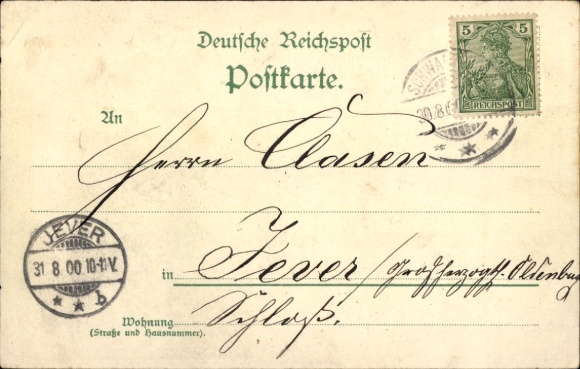 Deutsche Reichspost
Postkarte.
5 5
REICHSPOST
30.8.0
An
Herrn Clasen
JEVER
31 8 00 10-11V.
* * b
in Jever / Großherzogth. Oldenburg
Schloß.
Wohnung
(Straße und Hausnummer).